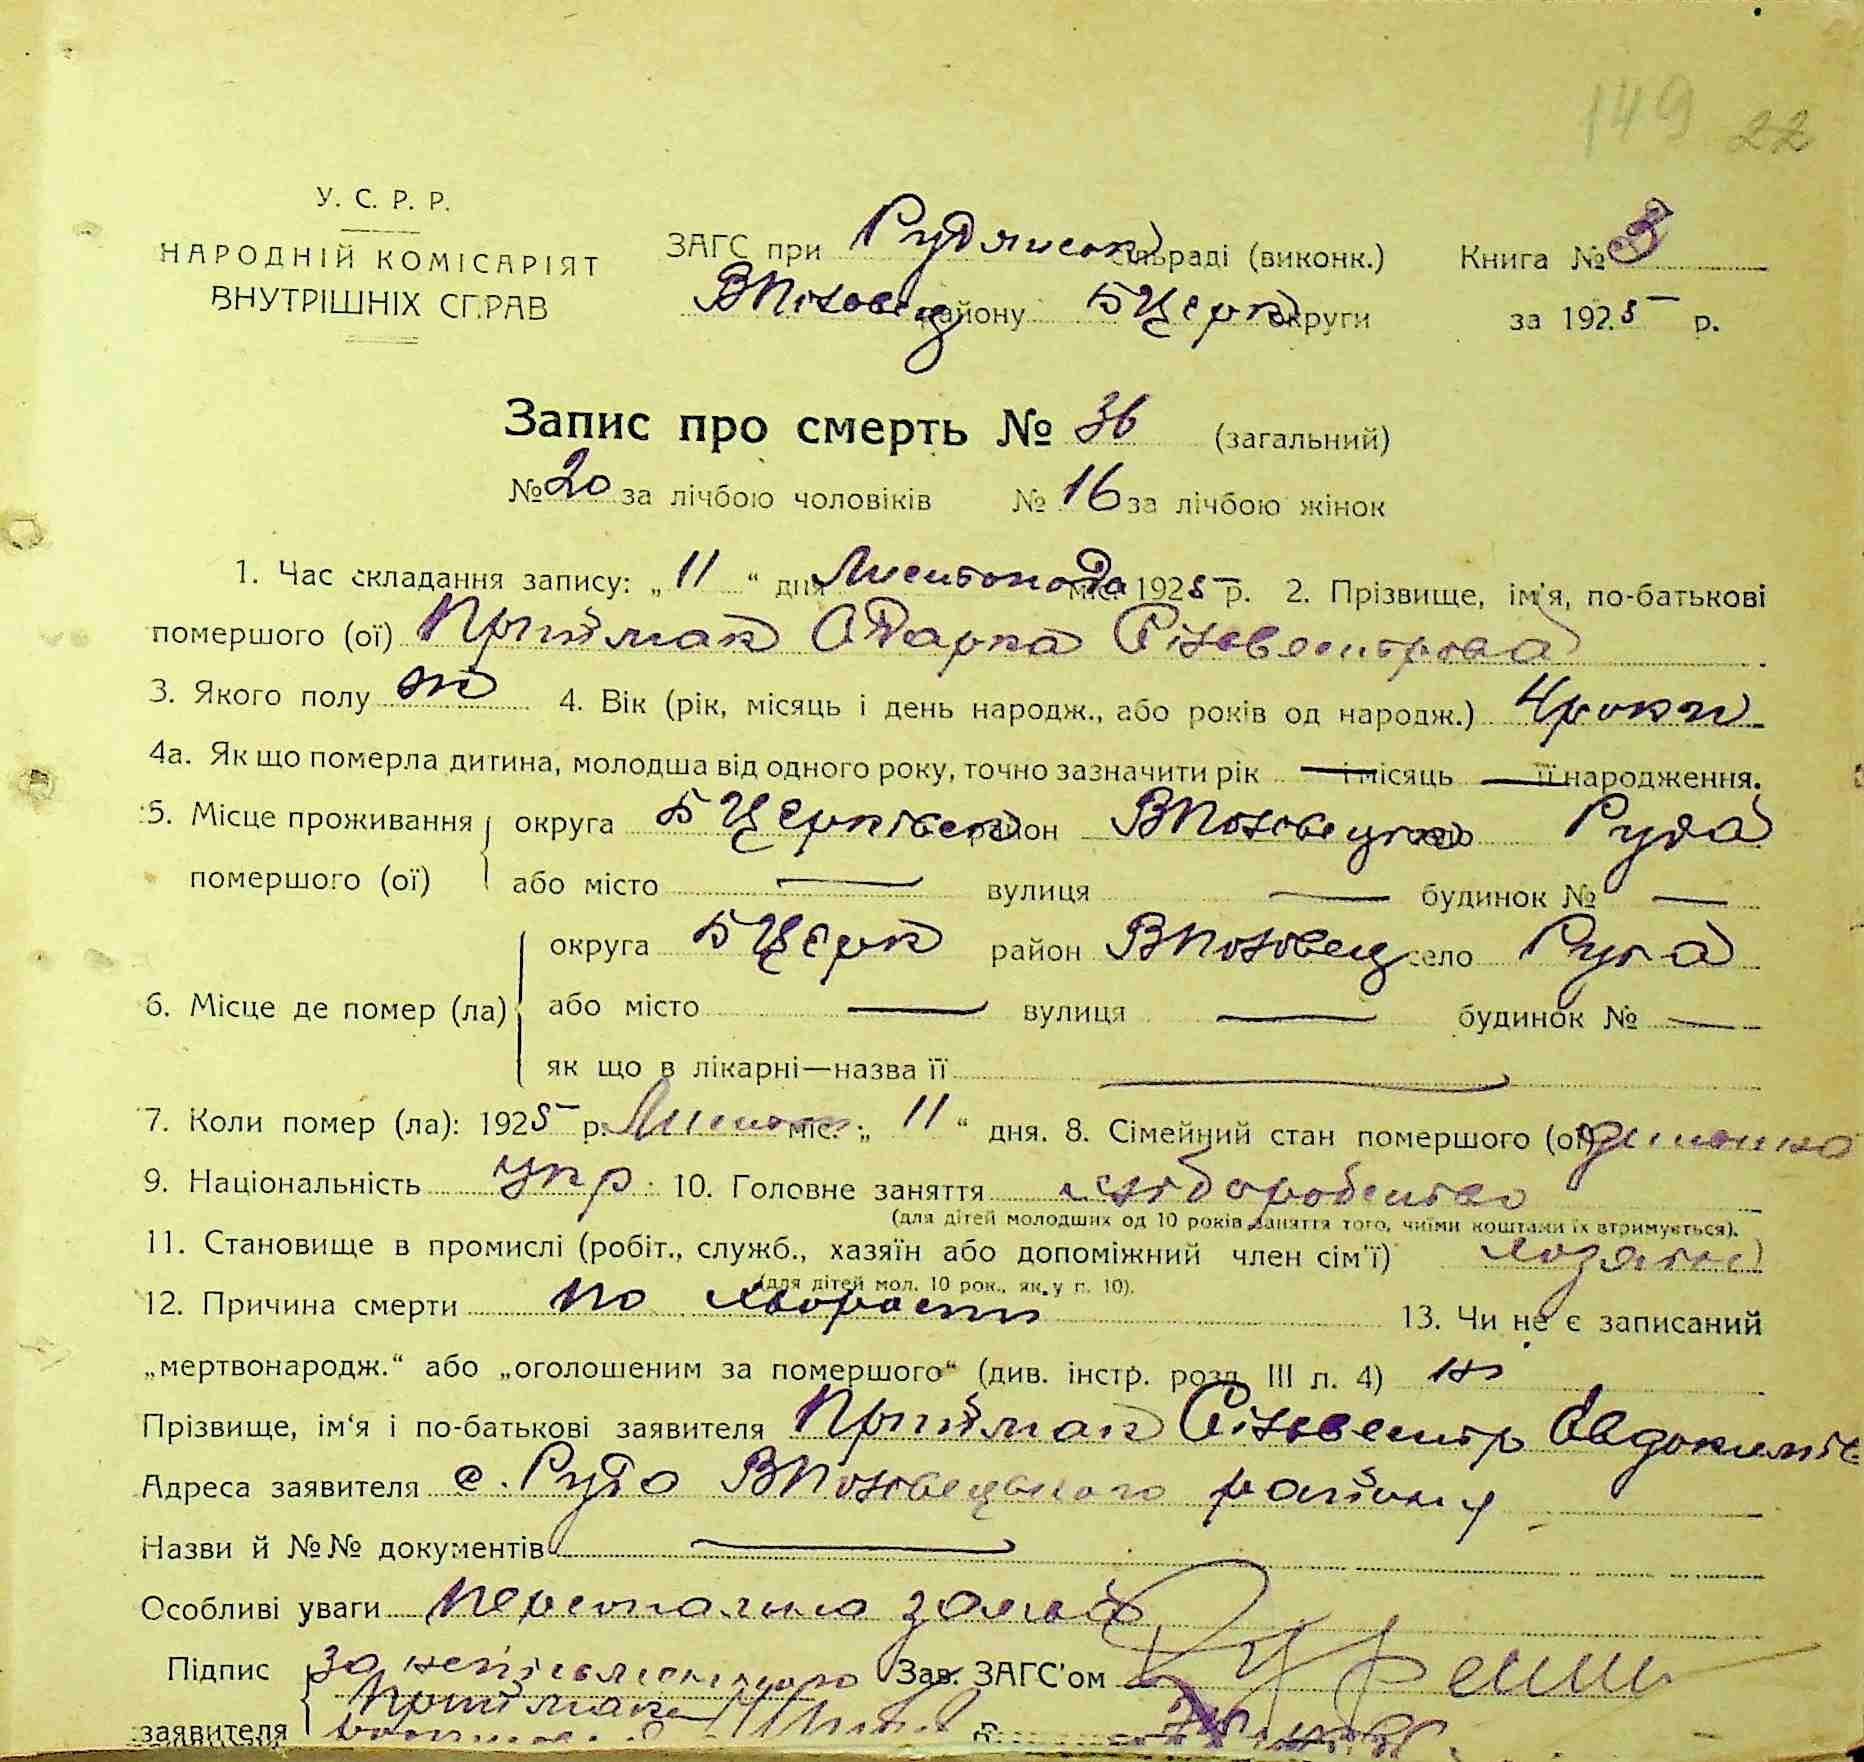 149 22
У. С. Р. Р.
НАРОДНІЙ КОМІСАРІЯТ
ВНУТРІШНІХ СПРАВ
ЗАГС при Рудянськ сільраді (виконк.) Книга № 3
ВПоловец району БЦерк округи за 1925 р.
Запис про смерть № 36 (загальний)
№ 20 за лічбою чоловіків № 16 за лічбою жінок
1. Час складання запису: „11“ дня Листопада міс. 1925 р. 2. Прізвище, ім'я, по-батькові
помершого (ої) Приймак Одарка Сільвестрова
3. Якого полу ж 4. Вік (рік, місяць і день народж., або років од народж.) 4 роки
4а. Як що померла дитина, молодша від одного року, точно зазначити рік — і місяць — її народження.
5. Місце проживання округа БЦерківськ район ВПоловецьк село Руда
помершого (ої) або місто — вулиця — будинок № —
округа БЦерк район ВПоловец село Руда
6. Місце де помер (ла) або місто — вулиця — будинок № —
як що в лікарні—назва її —
7. Коли помер (ла): 1925 р. Листоп міс. „11“ дня. 8. Сімейний стан помершого (ої) дитина
9. Національність укр. 10. Головне заняття хліборобство
(для дітей молодших од 10 років заняття того, чиїми коштами їх втримується).
11. Становище в промислі (робіт., служб., хазяїн або допоміжний член сім'ї) хозяїн
(для дітей мол. 10 рок., як у п. 10).
12. Причина смерти по хворасти 13. Чи не є записаний
„мертвонародж.“ або „оголошеним за помершого“ (див. інстр. розд. III п. 4) ні
Прізвище, ім'я і по-батькові заявителя Приймак Сільвестр Овдокимів
Адреса заявителя с. Руда ВПоловецького району
Назви й №№ документів —
Особливі уваги
Підпис за неписьменного Зав. ЗАГС'ом
заявителя Приймака